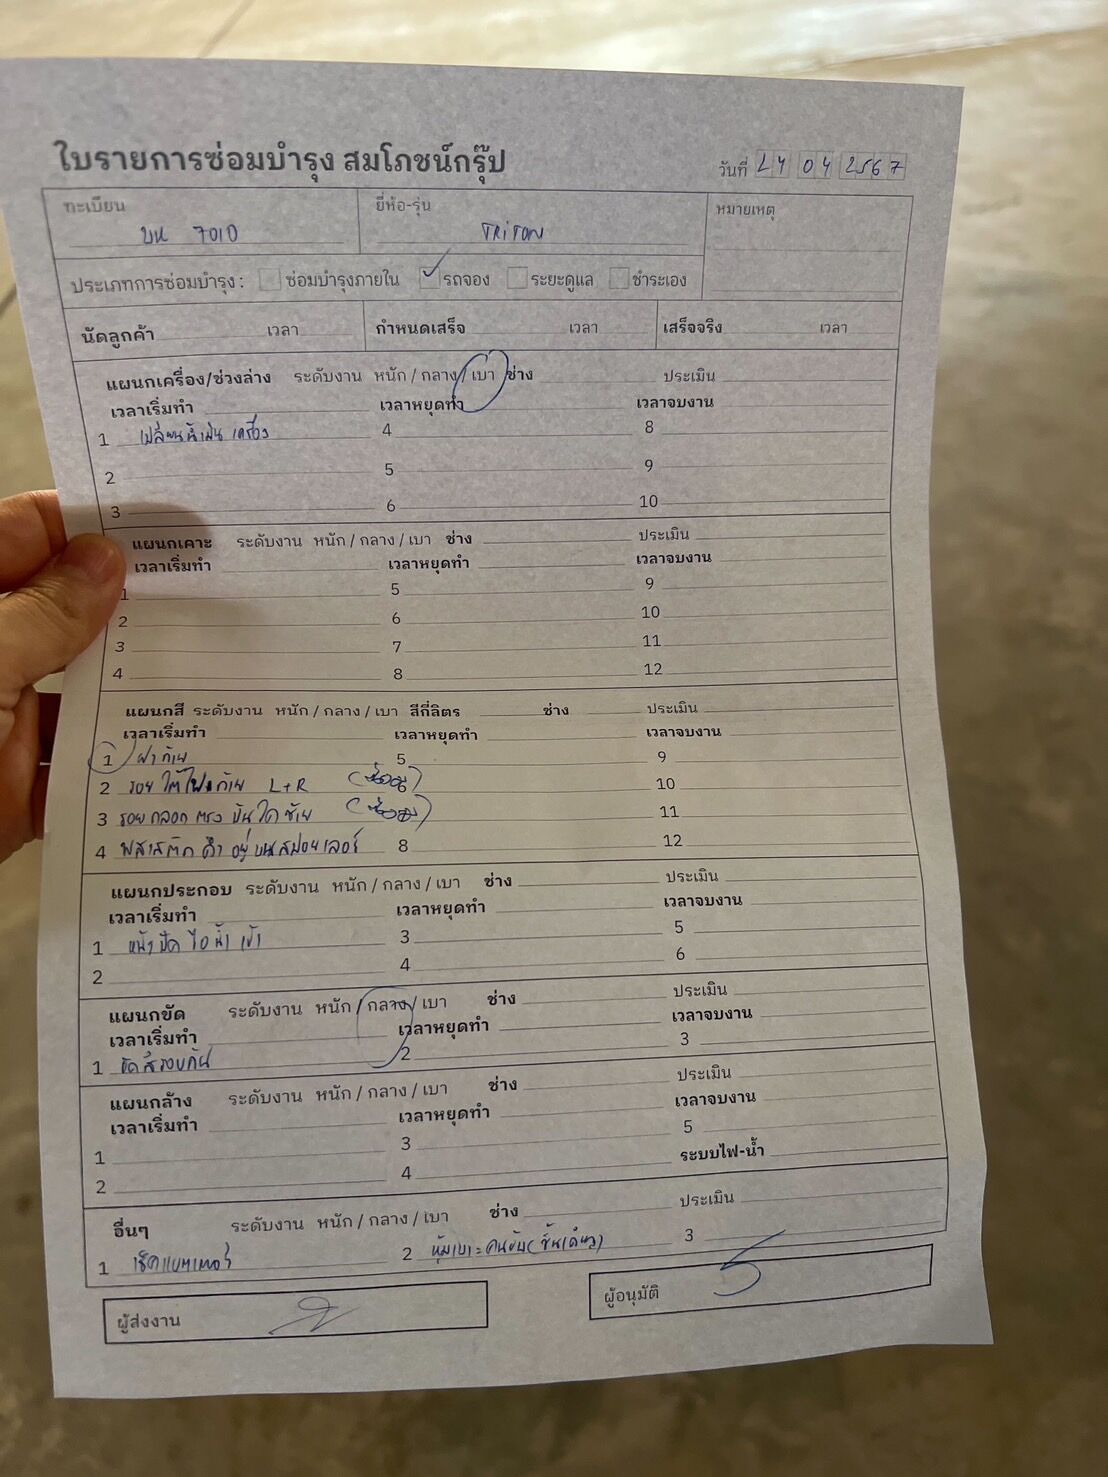 ใบรายการซ่อมบำรุง สมโภชน์กรุ๊ป
วันที่ 24 04 2567
ทะเบียน ยี่ห้อ-รุ่น หมายเหตุ
บห 7010 TRITON
ประเภทการซ่อมบำรุง : ซ่อมบำรุงภายใน รถจอง ระยะดูแล ชำระเอง
นัดลูกค้า เวลา กำหนดเสร็จ เวลา เสร็จจริง เวลา
แผนกเครื่อง/ช่วงล่าง ระดับงาน หนัก / กลาง / เบา ช่าง ประเมิน
เวลาเริ่มทำ เวลาหยุดทำ เวลาจบงาน
1 เปลี่ยนน้ำมันเครื่อง 4 8
2 5 9
3 6 10
แผนกเคาะ ระดับงาน หนัก / กลาง / เบา ช่าง ประเมิน
เวลาเริ่มทำ เวลาหยุดทำ เวลาจบงาน
1 5 9
2 6 10
3 7 11
4 8 12
แผนกสี ระดับงาน หนัก / กลาง / เบา สีกี่ลิตร ช่าง ประเมิน
เวลาเริ่มทำ เวลาหยุดทำ เวลาจบงาน
1 ฝาท้าย 5 9
2 รอยใต้ไฟท้าย L+R 10
3 รอยถลอกตรงบันไดซ้าย 11
4 พลาสติกดำอยู่บนสปอยเลอร์ 8 12
แผนกประกอบ ระดับงาน หนัก / กลาง / เบา ช่าง ประเมิน
เวลาเริ่มทำ เวลาหยุดทำ เวลาจบงาน
1 3 5
2 4 6
แผนกขัด ระดับงาน หนัก / กลาง / เบา ช่าง ประเมิน
เวลาเริ่มทำ เวลาหยุดทำ เวลาจบงาน
1 ขัดสีรอบคัน 2 3
แผนกล้าง ระดับงาน หนัก / กลาง / เบา ช่าง ประเมิน
เวลาเริ่มทำ เวลาหยุดทำ เวลาจบงาน
1 3 5
2 4 ระบบไฟ-น้ำ
อื่นๆ ระดับงาน หนัก / กลาง / เบา ช่าง ประเมิน
1 เช็คแบตเตอรี่ 2 หุ้มเบาะคนขับ(ชิ้นเดียว) 3
ผู้ส่งงาน ผู้อนุมัติ